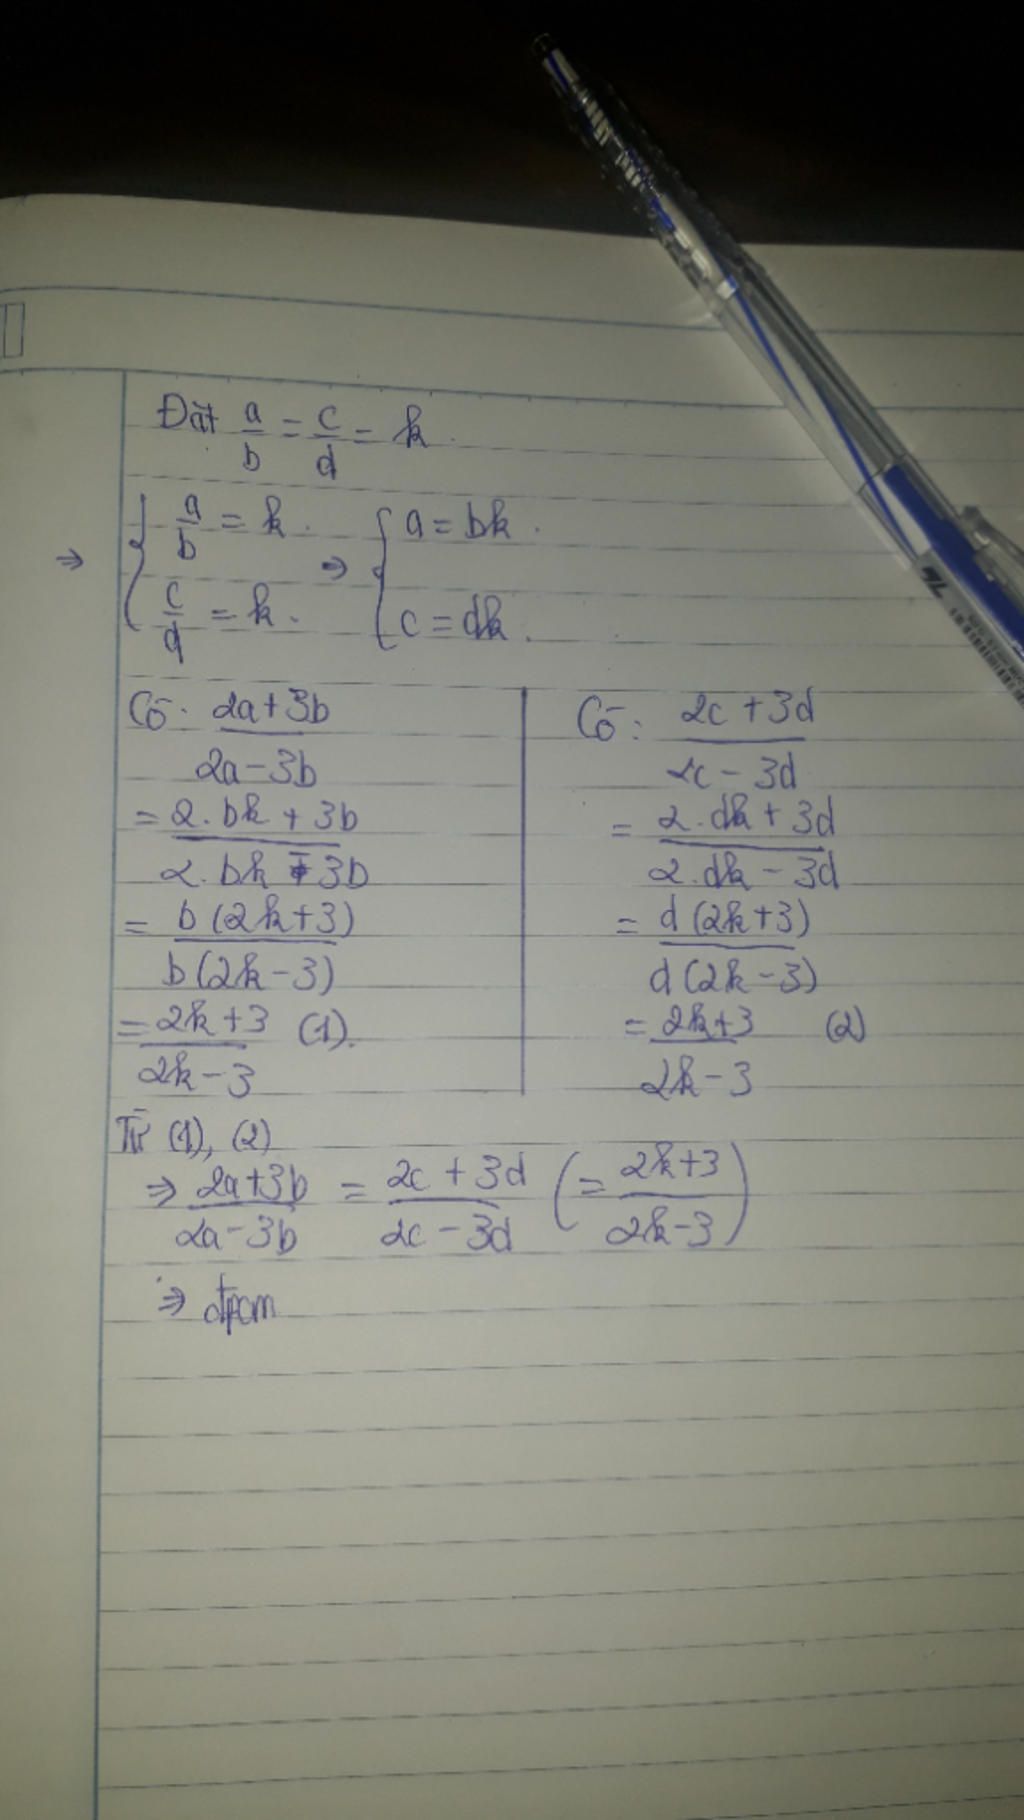 Đặt a/b = c/d = k.
⇒ { a/b = k. ⇒ { a = bk.
c/d = k. c = dk.
Có: 2a+3b / 2a-3b
= 2.bk + 3b / 2.bk - 3b
= b(2k+3) / b(2k-3)
= 2k+3 / 2k-3 (1).
Có: 2c+3d / 2c-3d
= 2.dk + 3d / 2.dk - 3d
= d(2k+3) / d(2k-3)
= 2k+3 / 2k-3 (2)
Từ (1), (2)
⇒ 2a+3b / 2a-3b = 2c+3d / 2c-3d (= 2k+3 / 2k-3)
⇒ đpcm